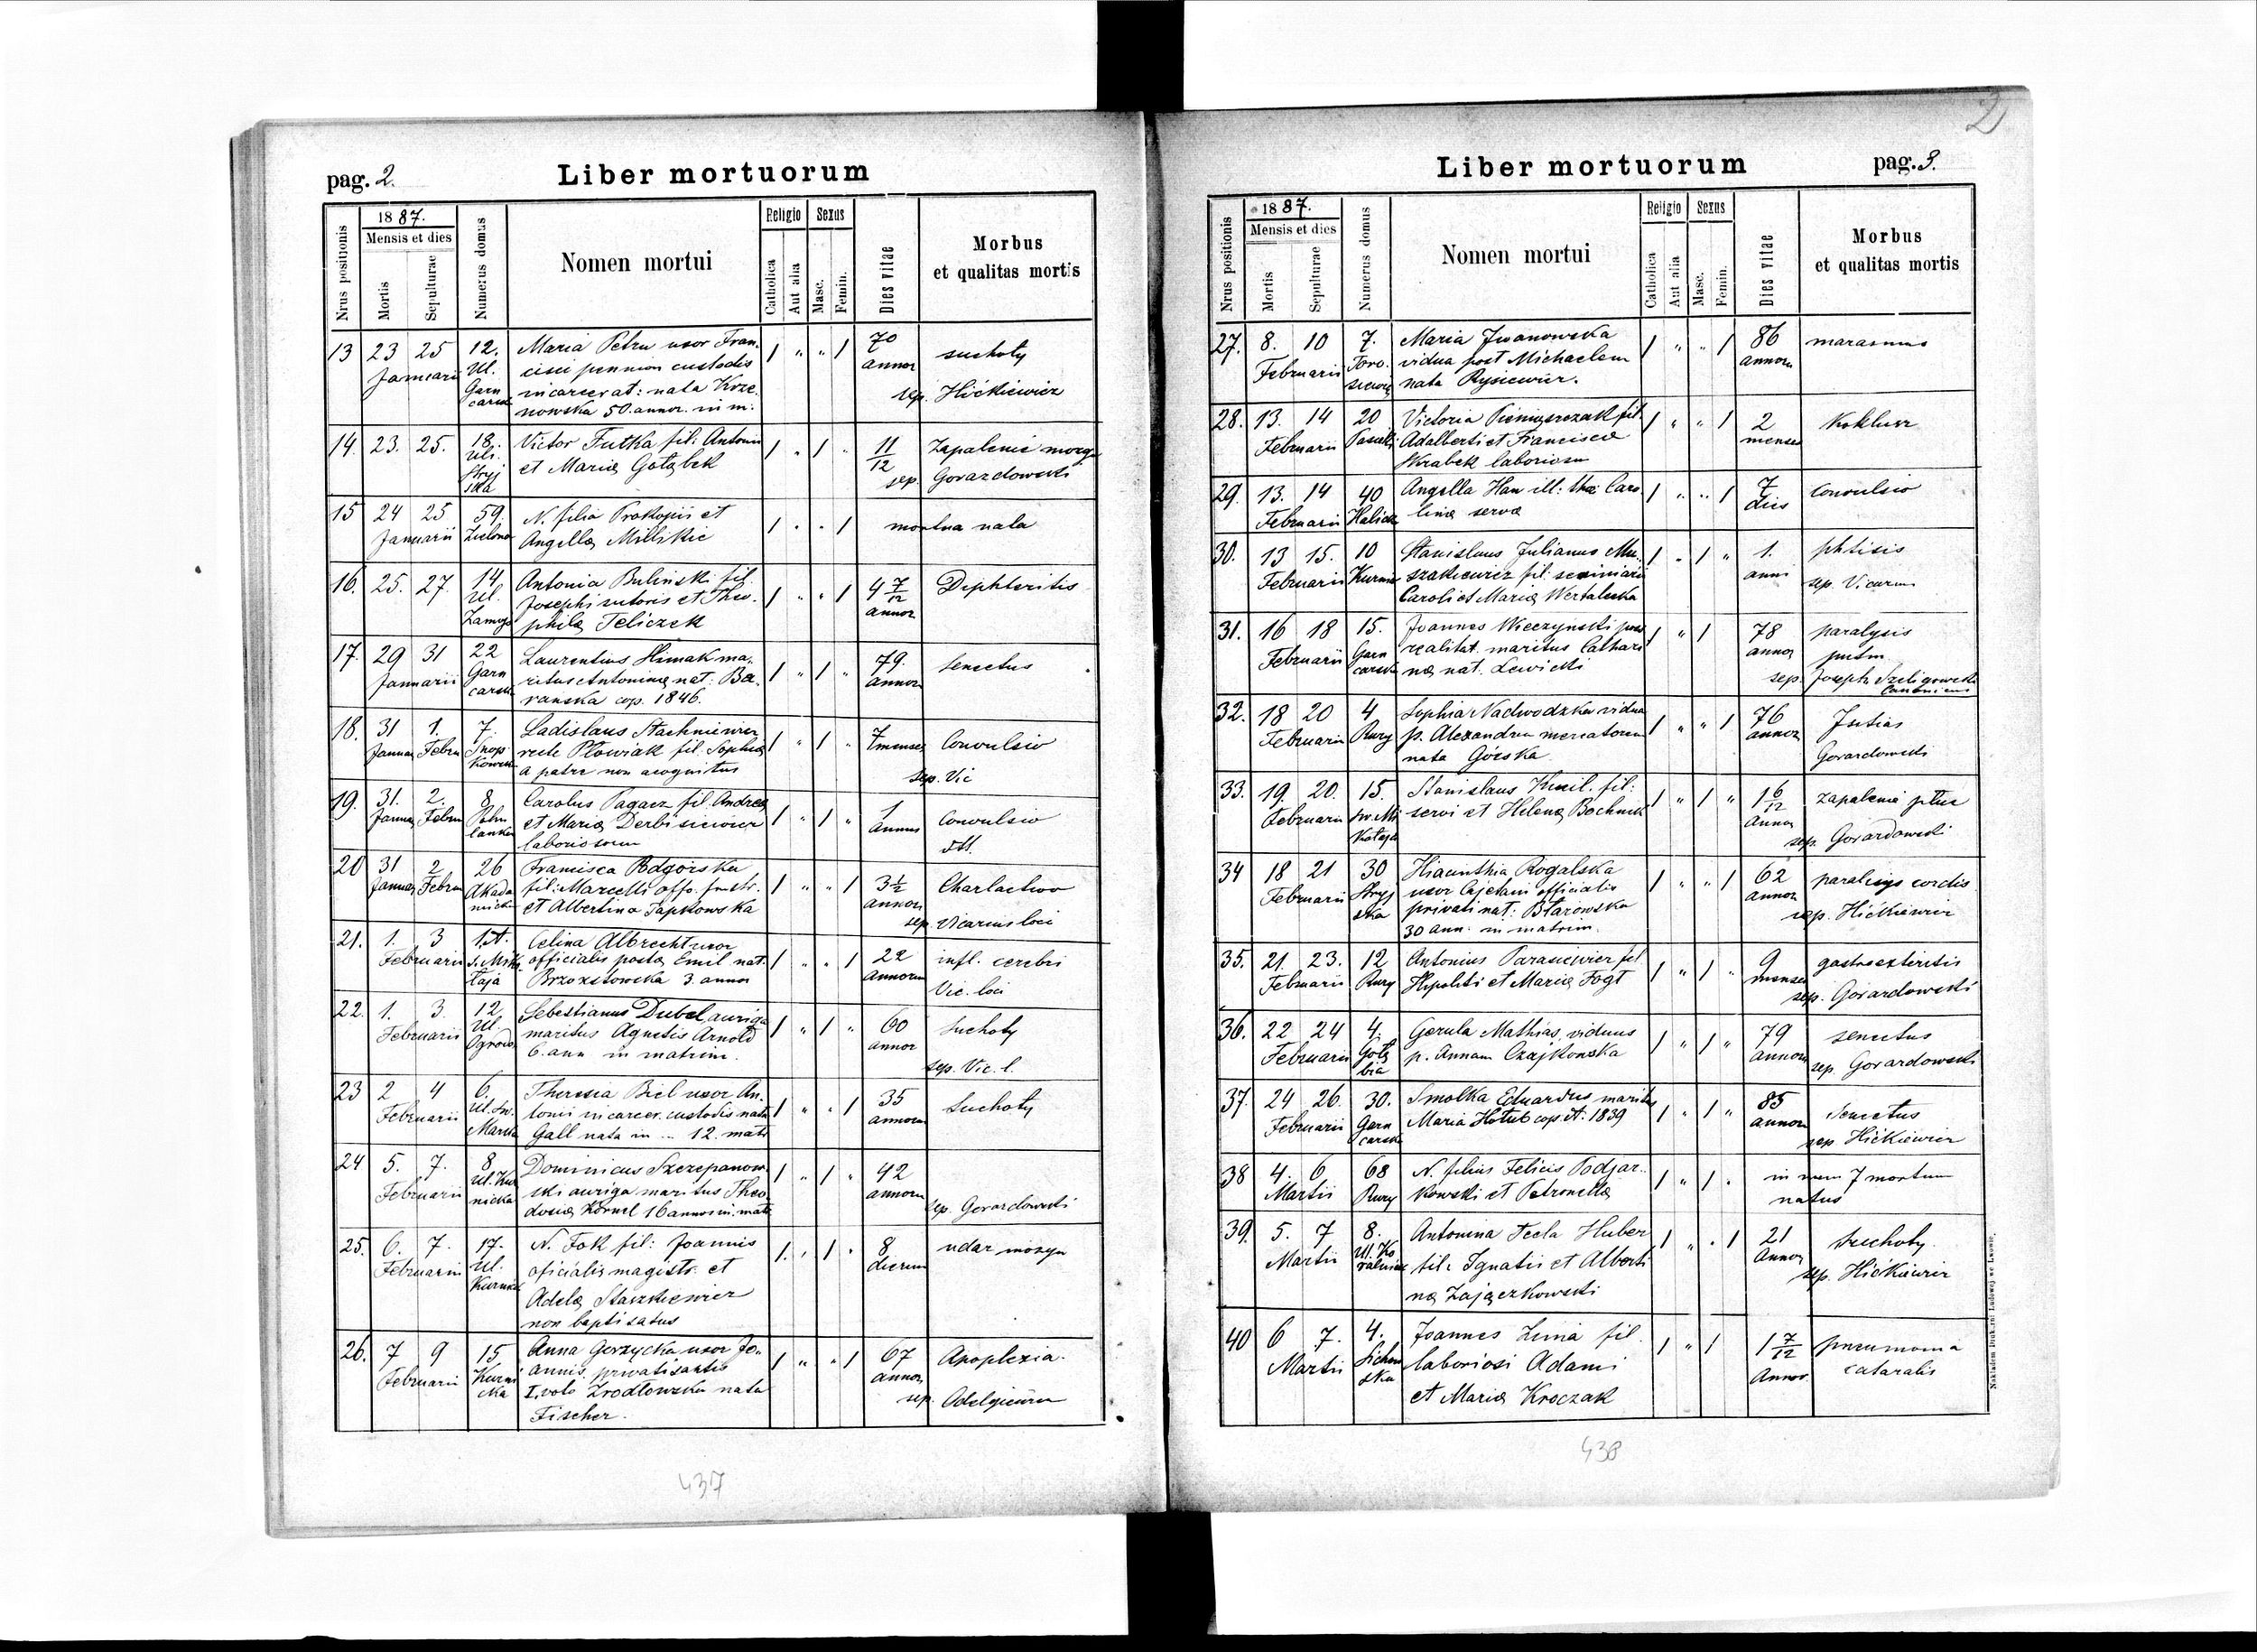 pag. 2.
Liber mortuorum
Nrus positionis
1887.
Mensis et dies
Mortis
Sepulturae
Numerus domus
Nomen mortui
Religio
Catholica
Aut alia
Sexus
Masc.
Femin.
Dies vitae
Morbus
et qualitas mortis
13 23 25 Januarii
12. Ul. Garn carska
Maria Petru uxor Fran.
cisci pension custodis
incarcerat: nata Krze
nowska 50. annor. in m:
1 " " 1
70 annor
suchoty
sep. Hićkiewicz
14. 23. 25.
18. Uli. Stryj ska
Victor Futka fil: Antonii
et Mariæ Gołąbek
1 " 1 "
11/12
Zapalenie mozgu
sep. Gorazdowski
15 24 25 Januarii
59. Zielona
N. filia Prokopii et
Angellæ Millikie
1 " " 1
mortua nata
16. 25. 27.
14 Ul. Zamojs
Antonia Bulinski fil.
Josephi sutoris et Theo.
philæ Teliczek
1 " " 1
4 7/12 annor
Dephteritis
17. 29 31 Januarii
22 Garn carska
Laurentius Himak ma.
ritus Antoninæ nat: Ba.
ranska cop. 1846.
1 " 1 "
79. annor
senectus
18. 31 Januar 1. Febru
7. Snop kowska
Ladislaus Stachniewicz
recte Plowiak fil. Sophiæ
a patre non acognitus
1 " 1 "
7 menses
Convulsio
sep. Vic
19. 31. Januar 2. Febru
8
Carolus Pagacz fil. Andreæ
et Mariæ Derbisiewicz
laboriosorum
1 " 1 "
1 annus
Convulsio
20 31 Januar 2 Febru
26 Akade micka
Francisca Podgórska
fil: Marcelli offo. frustr.
et Albertina Sapkowska
1 " " 1
3½ annor
Charlactwo
sep. Vicarius loci
21. 1. 3 Februarii
1.A. S. Miko łaja
Celina Albrecht uxor
officialis postæ Emil nat.
Brzoxstowska 3. annor
1 " " 1
22 annorum
infl. cerebri
Vic. loci
22. 1. 3. Februarii
12 Ul. Ogrodo
Sebestianus Dubel auriga
maritus Agnetis Arnold
6. ann in matrim.
1 " 1 "
60 annor
Suchoty
sep. Vic. l.
23 2 4 Februarii
6. Ul. Sw. Marka
Theresia Biel uxor An.
tonii incarcer. custodis nata
Gall nata in ... 12. matr
1 " " 1
35 annorum
Suchoty
24 5. 7. Februarii
8 Ul. Kur nicka
Dominicus Szczepanow
ski auriga maritus Theo
dosiæ Kornel 16 annos in. matr
1 " 1 "
42 annorum
sep. Gorazdowski
25. 6. 7. Februarii
17. Ul. Kurnick
N. Fok fil: Joannis
oficialis magistr. et
Adelæ Staszkiewicz
non baptisatus
1. " 1 "
8 dierum
udar mozgu
26. 7 9 Februarii
15 Kurni cka
Anna Gorzycka uxor Jo.
annis, privatisantis
I. voto Zrodłowska nata
Fischer.
1 " " 1
67 annor
Apoplexia.
sep. Odelgiewicz
437
2
Liber mortuorum
pag. 3.
Nrus positionis
1887.
Mensis et dies
Mortis
Sepulturae
Numerus domus
Nomen mortui
Religio
Catholica
Aut alia
Sexus
Masc.
Femin.
Dies vitae
Morbus
et qualitas mortis
27. 8. 10 Februarii
7. Toro. siewicz
Maria Iwanowska
vidua post Michaelem
nata Rysiewicz.
1 " " 1
86 annor
marasmus
28. 13. 14 Februarii
20 Pasieki
Victoria Pieniązczak fil.
Adalberti et Franciscæ
Skrabek laboriosu
1 " " 1
2 menses
Koklusz
29. 13. 14 Februarii
40 Halicka
Angella Han ill: thæ Caro
linæ servæ
1 " " 1
7 dies
Convulsio
30. 13 15. Februarii
10 Kurnic
Stanislaus Julianus Mu
szakiewicz fil: seminiarii
Caroli et Mariæ Wertaleska
1 " 1 "
1. anni
phtisis
sep. Vicarius
31. 16 18 Februarii
15. Garn carska
Joannes Wieczynski poss
realitat. maritus Cathari
næ nat. Lewicki
1 " 1
78 annor
paralysis
pulm
sep. Joseph Szeligowski
Canonicus
32. 18 20 Februarii
4 Rury
Sophia Nadwodzka vidua
p. Alexandru mercatorem
nata Górska
1 " " 1
76 annor
Gorazdowski
33. 19. 20. Februarii
15. Sw. Mi kołaja
Stanislaus Kmil. fil:
servi et Helenæ Bochnek
1 " 1 "
1 6/12 annor
zapalenie płuc
sep. Gorazdowski
34 18 21 Februarii
30 Stryj ska
Hiacinthia Rogalska
uxor Cajetani officialis
privati nat: Błazowska
30 ann. in matrim.
1 " " 1
62 annor
paralisys cordis
sep. Hićkiewicz
35. 21. 23. Februarii
12 Rury
Antonius Parasiewicz fil
Hipoliti et Mariæ Fogt
1 " 1 "
9 menses
gastroexteritis
sep. Gorazdowski
36. 22 24 Februarii
4. Gołę bia
Gerula Mathias, viduus
p. Annam Czajkowska
1 " 1 "
79 annor
senectus
sep. Gorazdowski
37. 24 26. Februarii
30. Garn carska
Smolka Eduardus maritus
Maria Hołub cop. A. 1839
1 " 1 "
85 annor
Senectus
sep Hićkiewicz
38 4. 6 Martii
68 Rury
N. filius Felicis Podjar.
kowski et Petronellæ
1 " 1 "
in men 7 mortuus
natus
39. 5. 7 Martii
8. Ul. Ko ralnick
Antonina Tecla Huber
fil: Ignatii et Alberti
næ Zajączkowski
1 " " 1
21 Annor
Suchoty
sep. Hićkiewicz
40 6 7. Martii
4. Lichow ska
Joannes Zima fil.
laboriosi Adami
et Mariæ Kroczak
1 " 1
1 7/12 Annor
pneumonia
cataralis
Nakładem Drukarni Ludowej we Lwowie.
438